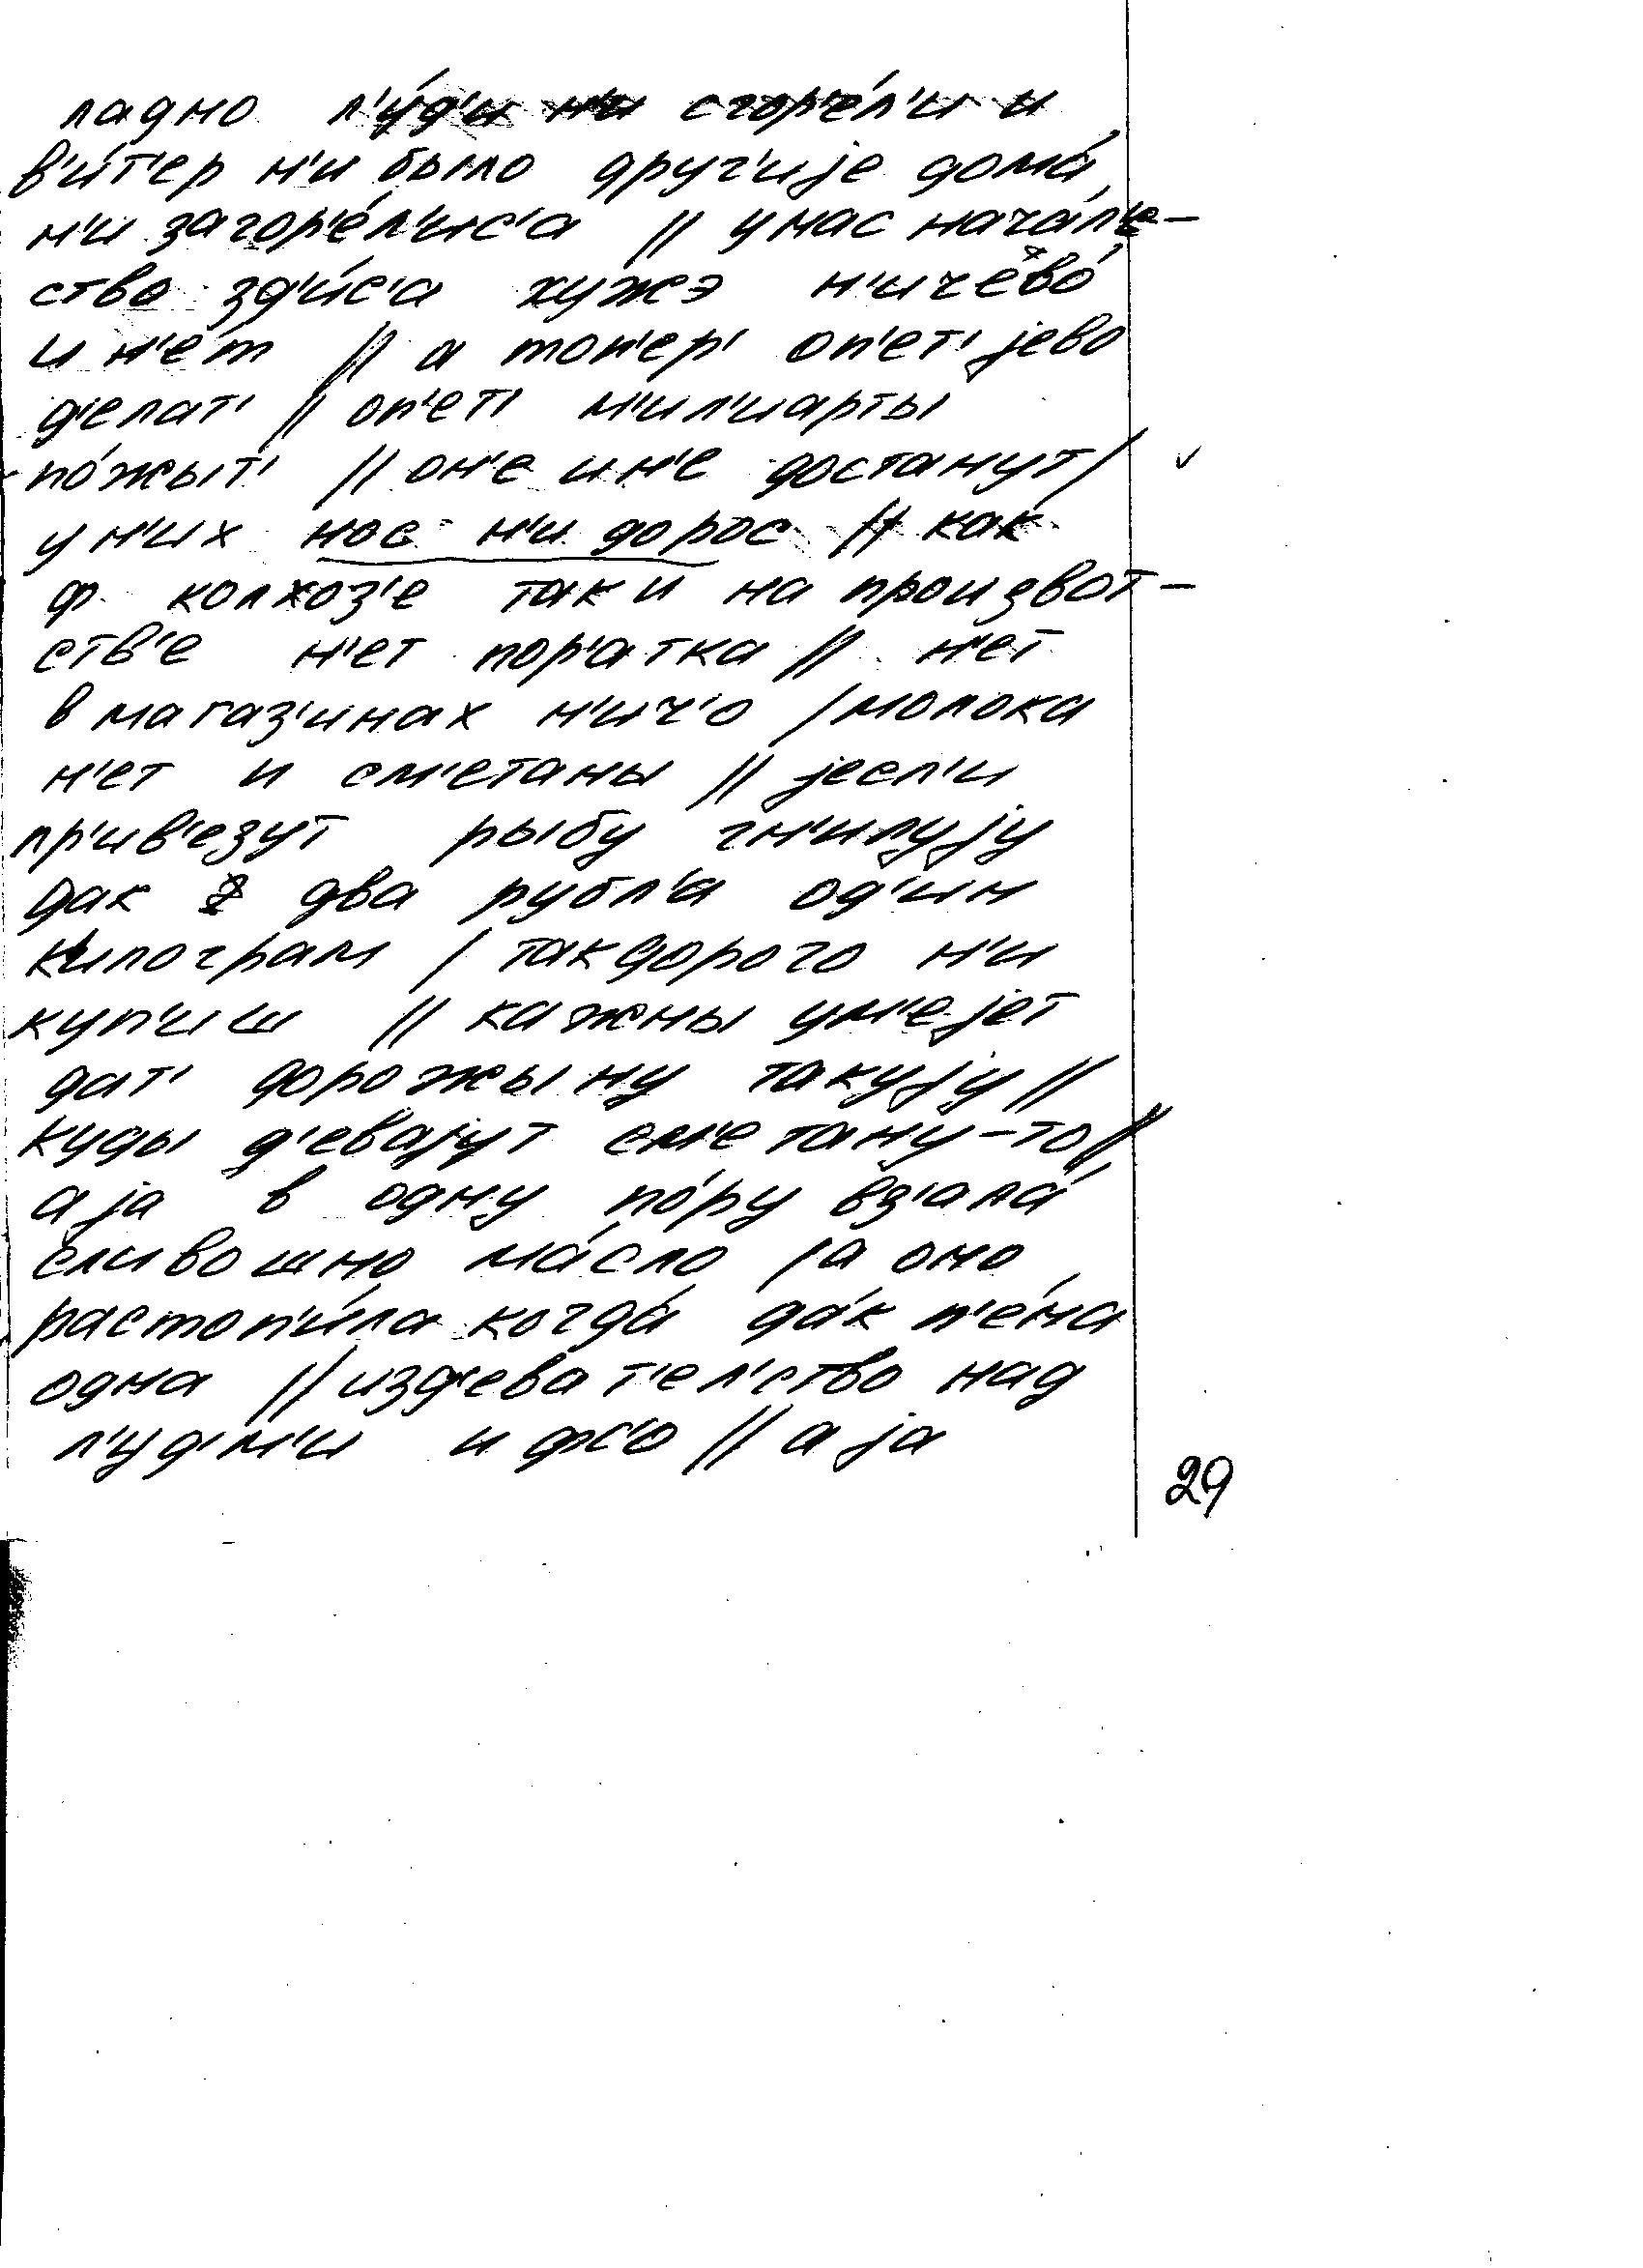 ладно л'у́д'и н'и сгор'е́л'и и
в'и́т'ер н'и было друг'иjе дома́
н'и загор'е́л'ис'а // у нас нача́л'-
ство зд'и́с'а хужэ н'ичево́
и н'е́т // а топ'ер' оп'ет' jево
д'елат' // оп'ет' м'ил'иарты
по́жыт' // он'е и н'е достанут /
у н'их нос н'и дорос // как
ф колхоз'е так и на произвот-
ств'е н'ет пор'атка // н'ет
в магаз'инах н'ич'о / молока
н'ет и см'етаны // jесл'и
пр'ив'езут рыбу гн'илуjу
дак два рубл'а од'ин
к'илограм / так дорого н'и
куп'иш // кажны ум'еjет
дат' дорожыну такуjу //
куды д'еваjут см'етану-то //
а jа в одну по́ру вз'ала́
сливошно ма́сло / а оно
растоп'и́ла когда́ да́к п'е́на
одна // изд'еват'ел'ство над
л'уд'м'и и фс'о // а jа
29